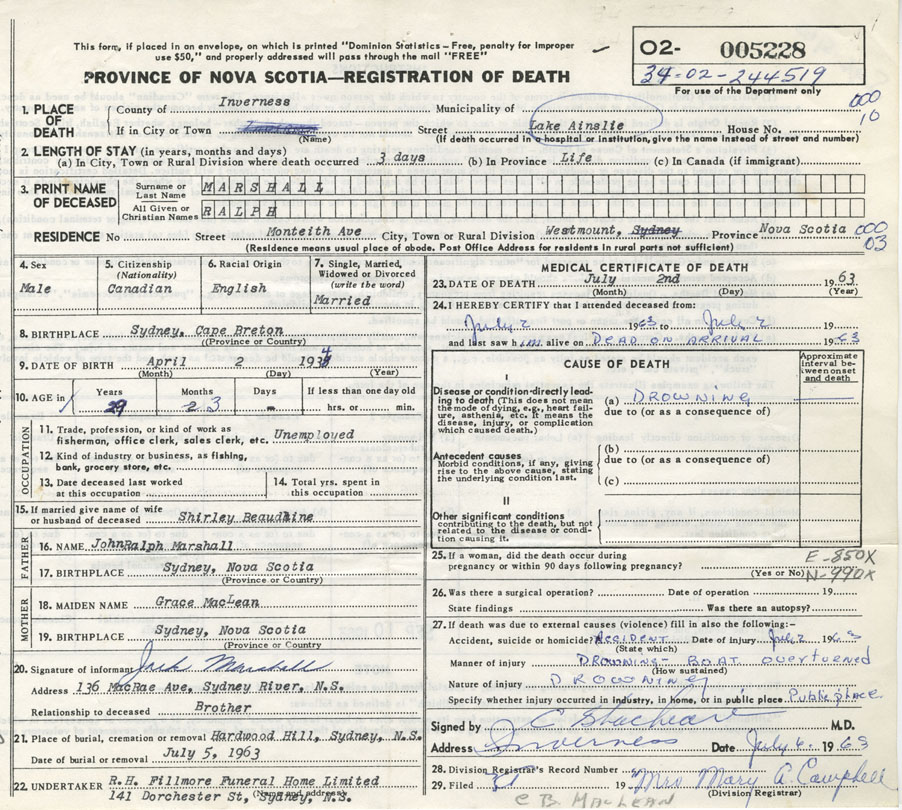 This form, if placed in an envelope, on which is printed "Dominion Statistics – Free, penalty for improper
use $50," and properly addressed will pass through the mail "FREE"
PROVINCE OF NOVA SCOTIA—REGISTRATION OF DEATH
02- 005228
34-02-244519
For use of the Department only
1. PLACE OF DEATH
County of Inverness Municipality of
000
10
If in City or Town Street Lake Ainslie House No.
(Name) (If death occurred in a hospital or institution, give the name instead of street and number)
2. LENGTH OF STAY (in years, months and days)
(a) In City, Town or Rural Division where death occurred 3 days (b) In Province Life (c) In Canada (if immigrant)
3. PRINT NAME OF DECEASED
Surname or Last Name MARSHALL
All Given or Christian Names RALPH
RESIDENCE No Street Monteith Ave City, Town or Rural Division Westmount, Sydney Province Nova Scotia
000
03
(Residence means usual place of abode. Post Office Address for residents in rural parts not sufficient)
4. Sex
Male
5. Citizenship
(Nationality)
Canadian
6. Racial Origin
English
7. Single, Married,
Widowed or Divorced
(write the word)
Married
8. BIRTHPLACE Sydney, Cape Breton
(Province or Country)
9. DATE OF BIRTH April 2 1934
(Month) (Day) (Year)
10. AGE in
Years
29
Months
2 3
Days
If less than one day old
hrs. or min.
OCCUPATION
11. Trade, profession, or kind of work as
fisherman, office clerk, sales clerk, etc. Unemployed
12. Kind of industry or business, as fishing,
bank, grocery store, etc.
13. Date deceased last worked
at this occupation
14. Total yrs. spent in
this occupation
15. If married give name of wife
or husband of deceased Shirley Beaudhine
FATHER
16. NAME John Ralph Marshall
17. BIRTHPLACE Sydney, Nova Scotia
(Province or Country)
MOTHER
18. MAIDEN NAME Grace MacLean
19. BIRTHPLACE Sydney, Nova Scotia
(Province or Country)
20. Signature of informant Jack Marshall
Address 136 MacRae Ave, Sydney River, N.S.
Relationship to deceased Brother
21. Place of burial, cremation or removal Hardwood Hill, Sydney, N.S.
Date of burial or removal July 5, 1963
22. UNDERTAKER R.H. Fillmore Funeral Home Limited
141 Dorchester St, Sydney, N.S.
(Name and address)
MEDICAL CERTIFICATE OF DEATH
23. DATE OF DEATH July 2nd 1963
(Month) (Day) (Year)
24. I HEREBY CERTIFY that I attended deceased from:
July 2 1963 to July 2 19
and last saw him alive on DEAD ON ARRIVAL 1963
CAUSE OF DEATH
Approximate interval between onset and death
I
Disease or condition directly leading to death (This does not mean the mode of dying, e.g., heart failure, asthenia, etc. It means the disease, injury, or complication which caused death.)
(a) DROWNING
due to (or as a consequence of)
Antecedent causes
Morbid conditions, if any, giving rise to the above cause, stating the underlying condition last.
(b)
due to (or as a consequence of)
(c)
II
Other significant conditions
contributing to the death, but not related to the disease or condition causing it.
25. If a woman, did the death occur during
pregnancy or within 90 days following pregnancy?
(Yes or No)
E-850X
N-990X
26. Was there a surgical operation? Date of operation 19
State findings Was there an autopsy?
27. If death was due to external causes (violence) fill in also the following:-
Accident, suicide or homicide? ACCIDENT Date of injury July 2 1963
(State which)
Manner of injury DROWNING - BOAT overturned
(How sustained)
Nature of injury DROWNING
Specify whether injury occurred in industry, in home, or in public place Public place
Signed by M.D.
Address Inverness Date July 6 1963
28. Division Registrar's Record Number
29. Filed 19 Mrs Mary A. Campbell
(Division Registrar)
C B. MacLEAN